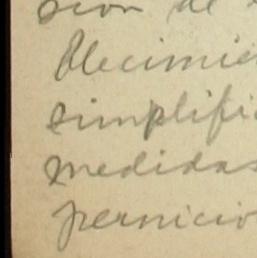 sion de
blecimie
simplifi
medidas
pernicio